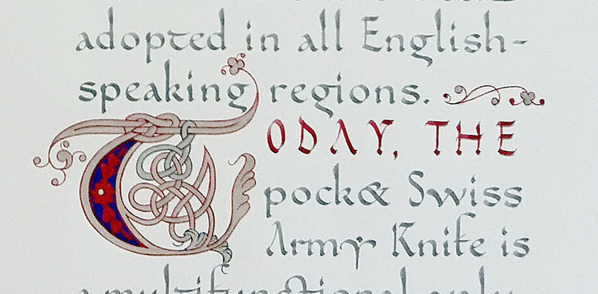 adopted in all English-
speaking regions.
TODAY, THE
pock& Swiss
Army Knife is
a multifunctional